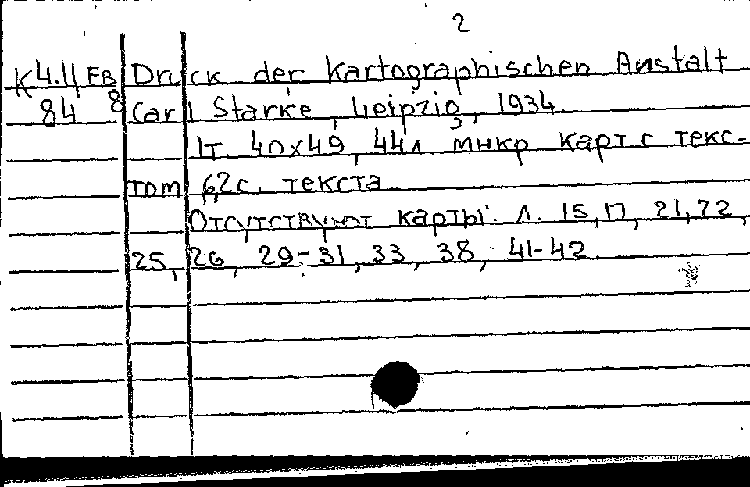 2
K 4.11 FB Druck der Kartographischen Anstalt
84 8 Carl Starke, Leipzig, 1934.
1т 40x49, 44л мнкр карт с текс-
том, 62с. текста
Отсутствуют карты: л. 15, 17, 21, 22,
25, 26, 29-31, 33, 38, 41-42.